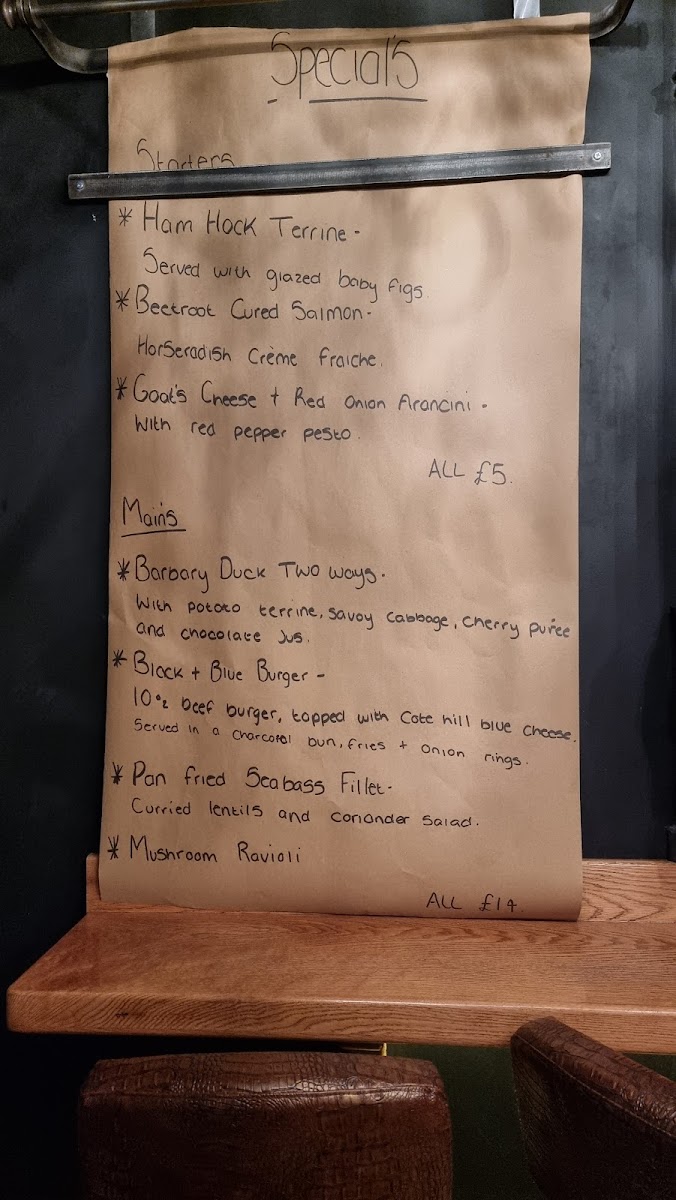 Special's
Starters
* Ham Hock Terrine -
Served with glazed baby figs.
* Beetroot Cured Salmon -
Horseradish Crème fraiche.
* Goat's Cheese + Red Onion Arancini -
With red pepper pesto.
ALL £5.
Main's
* Barbary Duck Two ways -
With potato terrine, savoy cabbage, cherry puree
and chocolate jus.
* Black + Blue Burger -
10oz beef burger, topped with Cote hill blue cheese.
Served in a charcoal bun, fries + onion rings.
* Pan fried Seabass Fillet -
Curried lentils and coriander salad.
* Mushroom Ravioli
ALL £14.